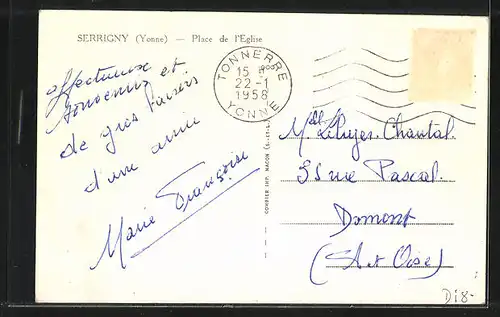 SERRIGNY (Yonne) — Place de l'Eglise
TONNERRE
15 H00
22-1
1958
YONNE
affectueux
souvenir et
de gros baisers
d'une amie
Marie Françoise
COMBIER IMP. MACON
Mlle Chantal
55 rue Pascal
Domont
(S et Oise)
D18-